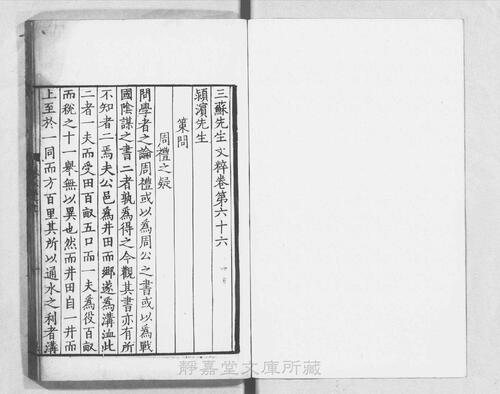 三蘇先生文粹卷第六十六
潁濱先生
策問
周禮之疑
問學者之論周禮或以為周公之書或以為戰
國陰謀之書二者孰為得之今觀其書亦有所
不知者二焉夫公邑為井田而鄉遂為溝洫此
二者一夫而受田百畝五口而一夫為役百畝
而稅之十一舉無以異也然而井田自一井而
上至於一同而方百里其所以通水之利者溝
靜嘉堂文庫所藏